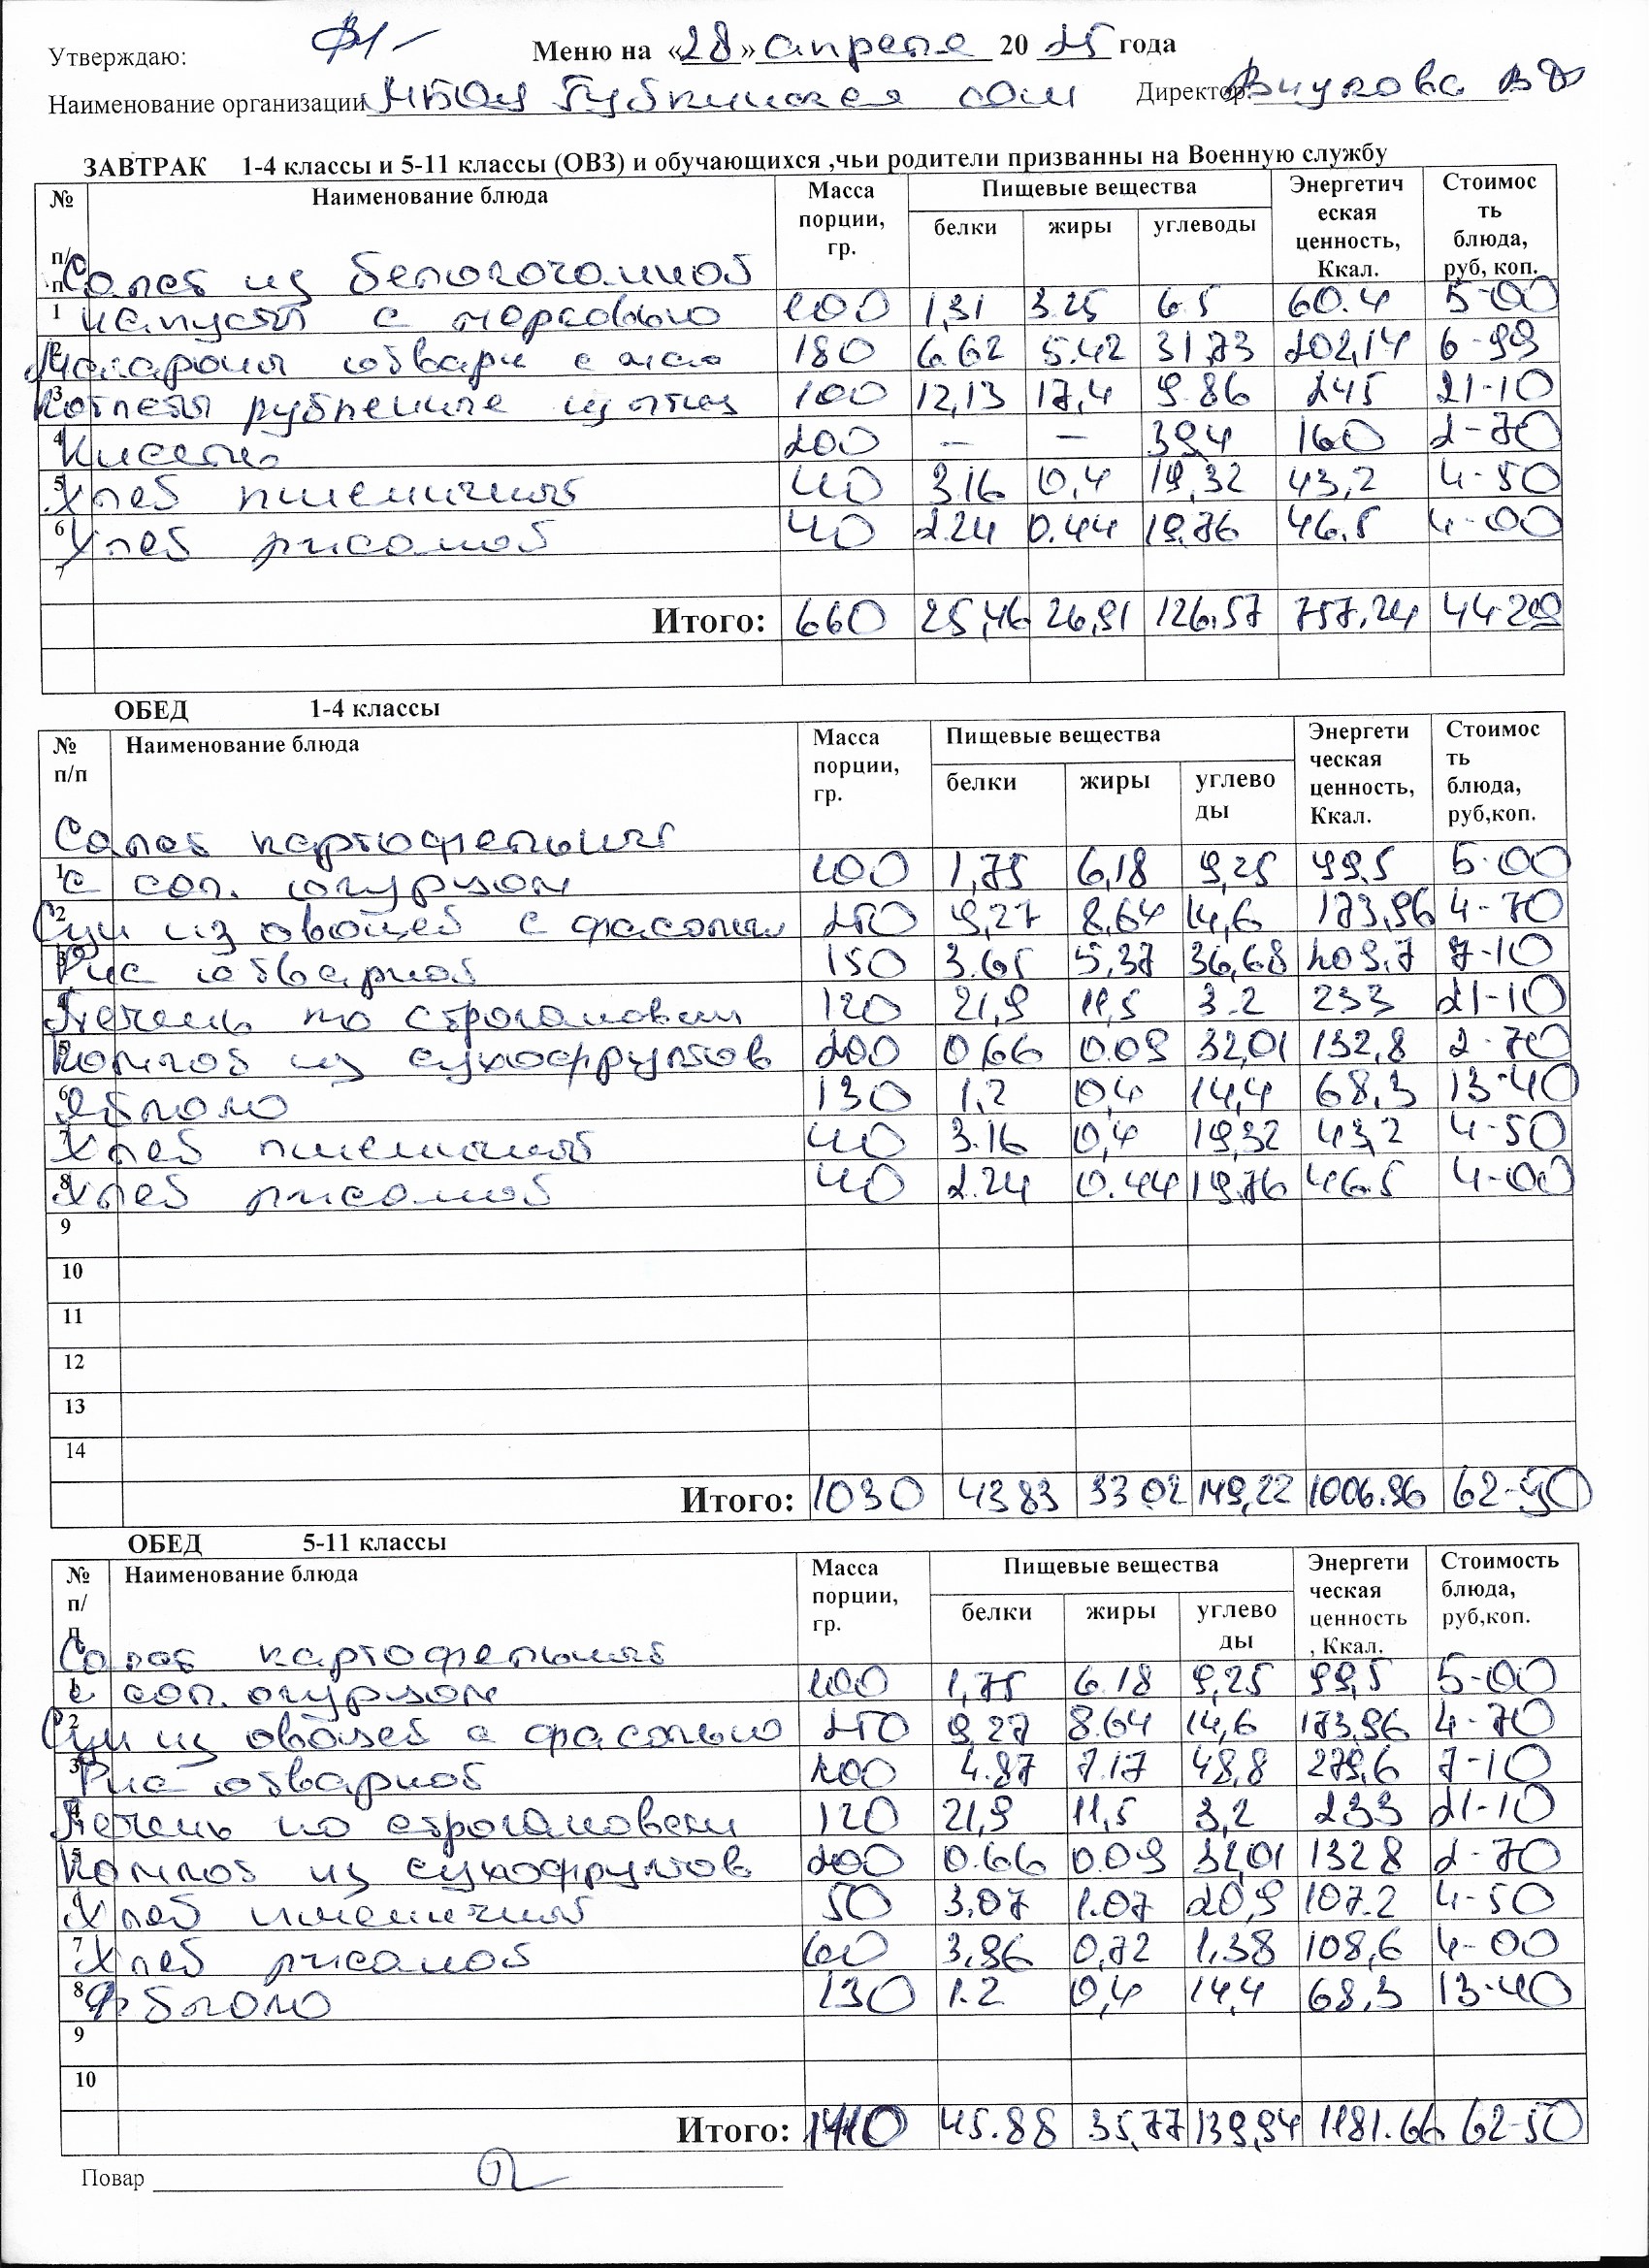 Утверждаю:
Меню на «28» апреля 2025 года
Наименование организации МБОУ Губкинская СОШ Директор: Внукова ВФ
ЗАВТРАК 1-4 классы и 5-11 классы (ОВЗ) и обучающихся ,чьи родители призванны на Военную службу
№ п/п Наименование блюда Масса порции, гр. Пищевые вещества белки жиры углеводы Энергетическая ценность, Ккал. Стоимость блюда, руб, коп.
Салат из белокочанной
1 капусты с морковью 100 1,31 3.25 6.5 60.4 5-00
2 Макароны отварн с мас 180 6.62 5.42 31,73 202,14 6-99
3 Котлеты рубленные из птиц 100 12,13 17,4 9.86 245 21-10
4 Кисель 200 – – 39,4 160 2-70
5 Хлеб пшеничный 40 3.16 0,4 19,32 43,2 4-50
6 Хлеб ржаной 40 2.24 0.44 19.76 46.5 4-00
7
Итого: 660 25,46 26,91 126.57 757.24 44-29
ОБЕД 1-4 классы
№ п/п Наименование блюда Масса порции, гр. Пищевые вещества белки жиры углеводы Энергетическая ценность, Ккал. Стоимость блюда, руб,коп.
Салат картофельный
1 с сол. огурцом 100 1,75 6,18 9,25 99.5 5-00
2 Суп из овощей с фасолью 250 9,27 8,64 14,6 173,96 4-70
3 Рис отварной 150 3.65 5,37 36,68 209.7 7-10
4 Печень по строгановски 120 21,9 11,5 3.2 233 21-10
5 Компот из сухофруктов 200 0,66 0.09 32,01 132,8 2-70
6 Яблоко 130 1,2 0,4 14,4 68,3 13-40
7 Хлеб пшеничный 40 3.16 0,4 19,32 43,2 4-50
8 Хлеб ржаной 40 2.24 0.44 19.76 46.5 4-00
9
10
11
12
13
14
Итого: 1030 43 83 33 02 149,22 1006.96 62-50
ОБЕД 5-11 классы
№ п/п Наименование блюда Масса порции, гр. Пищевые вещества белки жиры углеводы Энергетическая ценность, Ккал. Стоимость блюда, руб,коп.
Салат картофельный
1 с сол. огурцом 100 1,75 6.18 9,25 99,5 5-00
2 Суп из овощей с фасолью 250 9,27 8.64 14,6 173,96 4-70
3 Рис отварной 200 4.87 7.17 48,8 279,6 7-10
4 Печень по строгановски 120 21,9 11,5 3,2 233 21-10
5 Компот из сухофруктов 200 0.66 0.09 32,01 132 8 2-70
6 Хлеб пшеничный 50 3,07 1.07 20,9 107.2 4-50
7 Хлеб ржаной 60 3,96 0,72 1,38 108,6 4-00
8 Яблоко 130 1.2 0,4 14,4 68,3 13-40
9
10
Итого: 45.88 35,77 139,94 1181.66 62-50
Повар